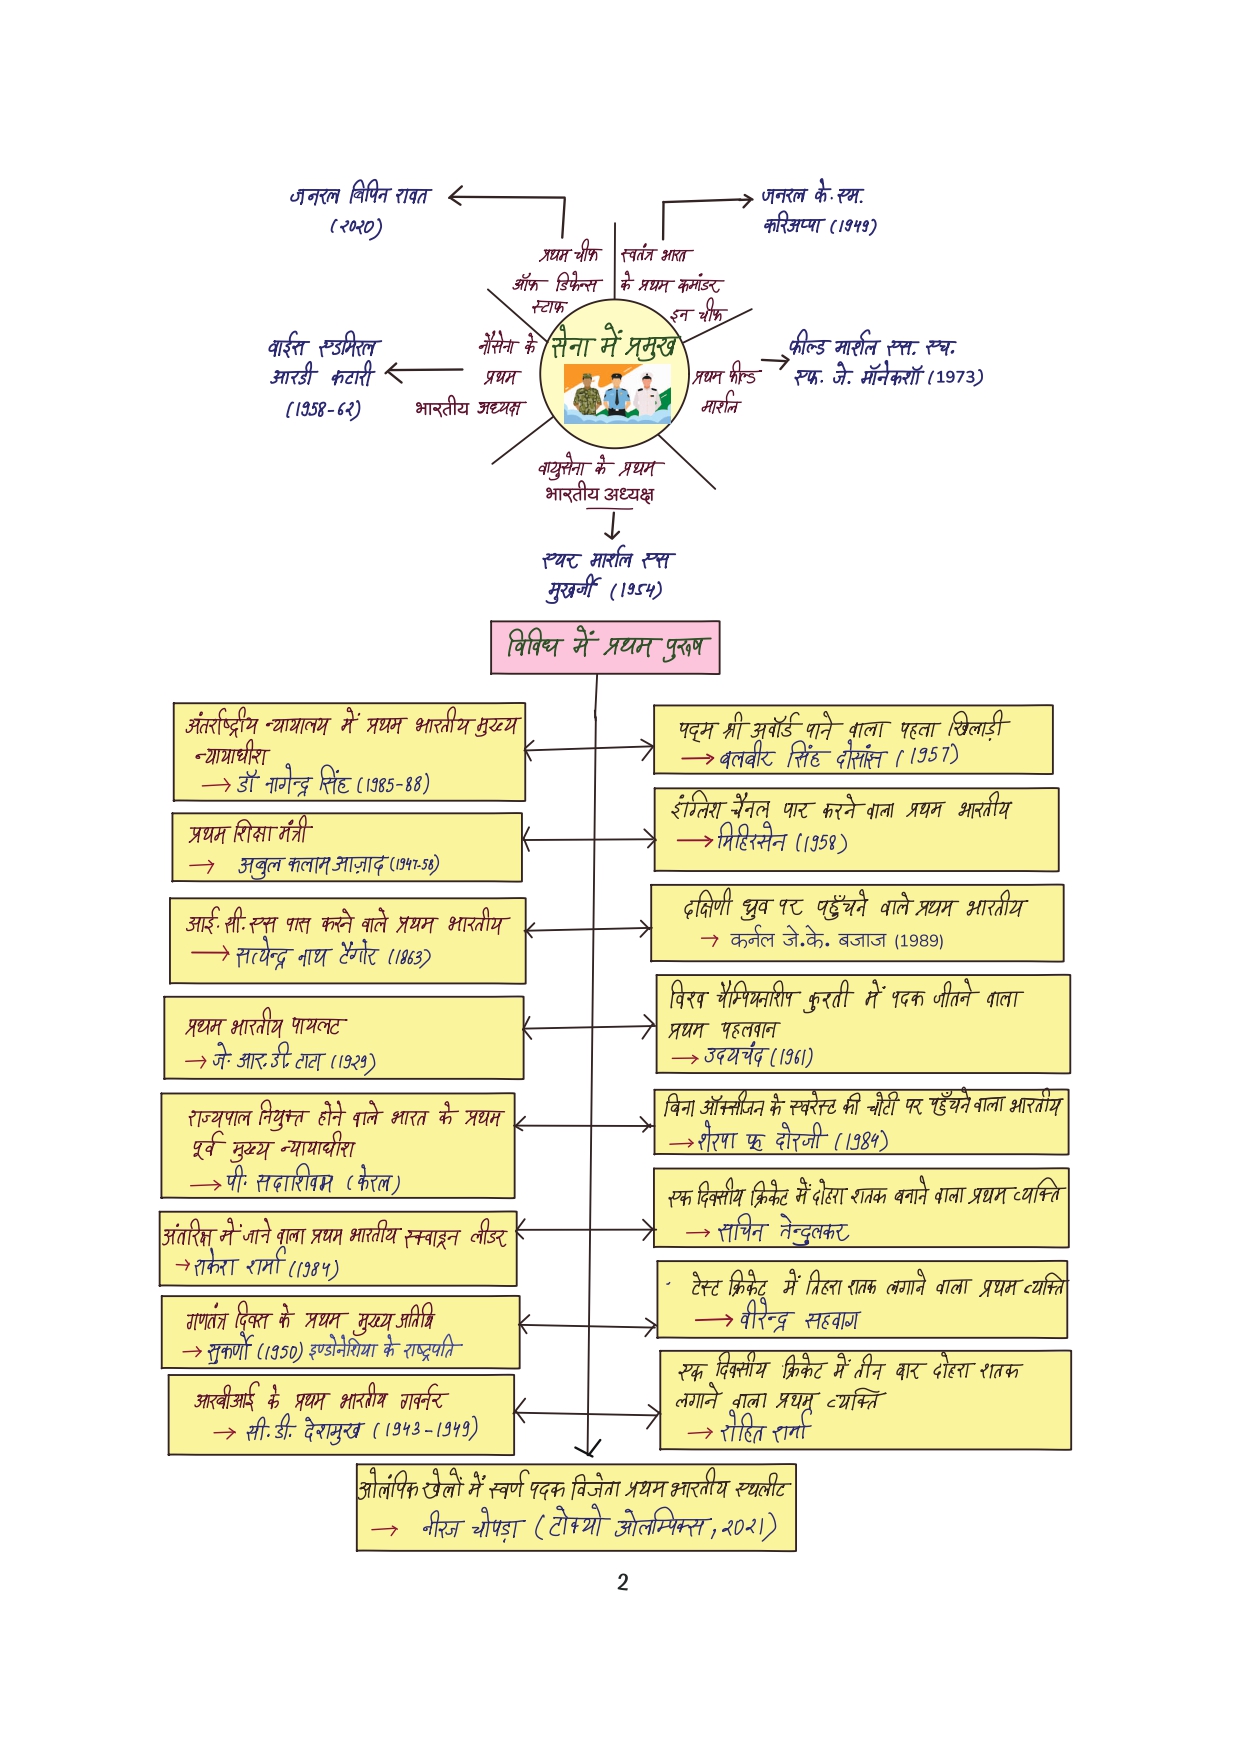 जनरल विपिन रावत
(2020)
जनरल के. एम.
करिअप्पा (1949)
प्रथम चीफ
ऑफ डिफेन्स
स्टाफ
स्वतंत्र भारत
के प्रथम कमांडर
इन चीफ
सेना में प्रमुख
वाईस एडमिरल
आरडी कटारी
(1958-62)
नौसेना के
प्रथम
भारतीय अध्यक्ष
प्रथम फील्ड
मार्शल
फील्ड मार्शल एस. एच.
एफ. जे. मॉनेकशॉ (1973)
वायुसेना के प्रथम
भारतीय अध्यक्ष
एयर मार्शल एस
मुखर्जी (1954)
विविध में प्रथम पुरूष
अंतर्राष्ट्रीय न्यायालय में प्रथम भारतीय मुख्य
न्यायाधीश
→ डॉ नागेन्द्र सिंह (1985-88)
प्रथम शिक्षा मंत्री
→ अबुल कलाम आज़ाद (1947-58)
आई. सी. एस पास करने वाले प्रथम भारतीय
→ सत्येन्द्र नाथ टैगोर (1863)
प्रथम भारतीय पायलट
→ जे. आर. डी. टाटा (1929)
राज्यपाल नियुक्त होने वाले भारत के प्रथम
पूर्व मुख्य न्यायाधीश
→ पी. सदाशिवम (केरल)
अंतरिक्ष में जाने वाला प्रथम भारतीय स्क्वाइन लीडर
→ राकेश शर्मा (1984)
गणतंत्र दिवस के प्रथम मुख्य अतिथि
→ सुकर्णो (1950) इण्डोनेशिया के राष्ट्रपति
आरबीआई के प्रथम भारतीय गवर्नर
→ सी. डी. देशमुख (1943-1949)
पद्म श्री अवॉर्ड पाने वाला पहला खिलाड़ी
→ बलबीर सिंह दोसांझ (1957)
इंग्लिश चैनल पार करने वाला प्रथम भारतीय
→ मिहिरसेन (1958)
दक्षिणी ध्रुव पर पहुँचने वाले प्रथम भारतीय
→ कर्नल जे.के. बजाज (1989)
विश्व चैम्पियनशिप कुश्ती में पदक जीतने वाला
प्रथम पहलवान
→ उदयचंद (1961)
बिना ऑक्सीजन के एवरेस्ट की चोटी पर पहुँचने वाला भारतीय
→ शेरपा फू दोरजी (1984)
एक दिवसीय क्रिकेट में दोहरा शतक बनाने वाला प्रथम व्यक्ति
→ सचिन तेन्दुलकर
टेस्ट क्रिकेट में तिहरा शतक लगाने वाला प्रथम व्यक्ति
→ वीरेन्द्र सहवाग
एक दिवसीय क्रिकेट में तीन बार दोहरा शतक
लगाने वाला प्रथम व्यक्ति
→ रोहित शर्मा
ओलंपिक खेलों में स्वर्ण पदक विजेता प्रथम भारतीय एथलीट
→ नीरज चोपड़ा (टोक्यो ओलम्पिक्स, 2021)
2